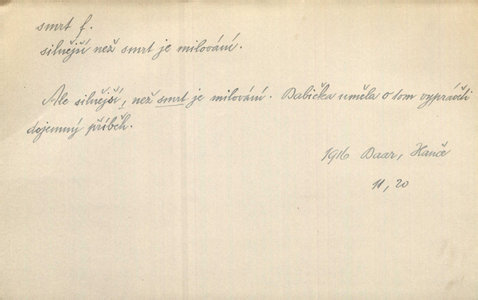 smrt f.
silnější než smrt je milování.
Ale silnější, než smrt je milování. Babička uměla o tom vyprávěti
dojemný příběh.
1916 Baar, Hanče
11, 20